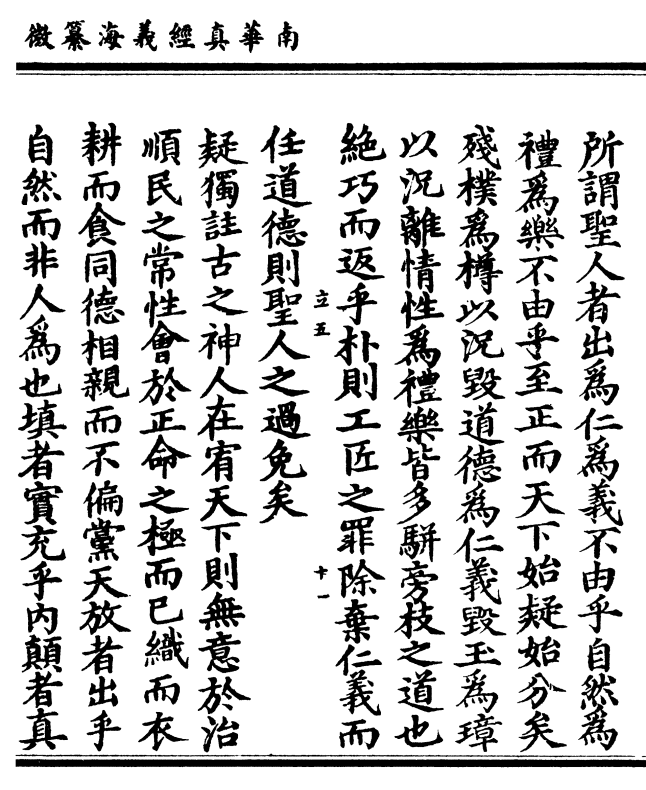 南華真經義海纂微
所謂聖人者出為仁為義不由乎自然為
禮為樂不由乎至正而天下始疑始分矣
殘樸為樽以況毀道德為仁義毀玉為璋
以況離情性為禮樂皆多駢旁枝之道也
絶巧而返乎朴則工匠之罪除棄仁義而
立五
十一
任道德則聖人之過免矣
疑獨註古之神人在宥天下則無意於治
順民之常性會於正命之極而已織而衣
耕而食同德相親而不偏黨天放者出乎
自然而非人為也填者實充乎内顛者真